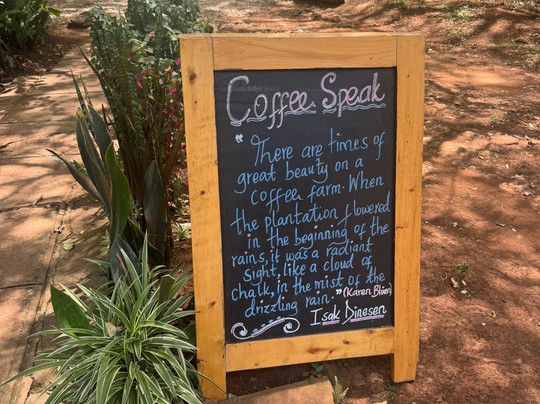 Coffee Speak
"There are times of
great beauty on a
coffee farm. When
the plantation flowered
in the beginning of the
rains, it was a radiant
sight, like a cloud of
chalk, in the mist of the
drizzling rain." (Karen Blixen)
Isak Dinesen